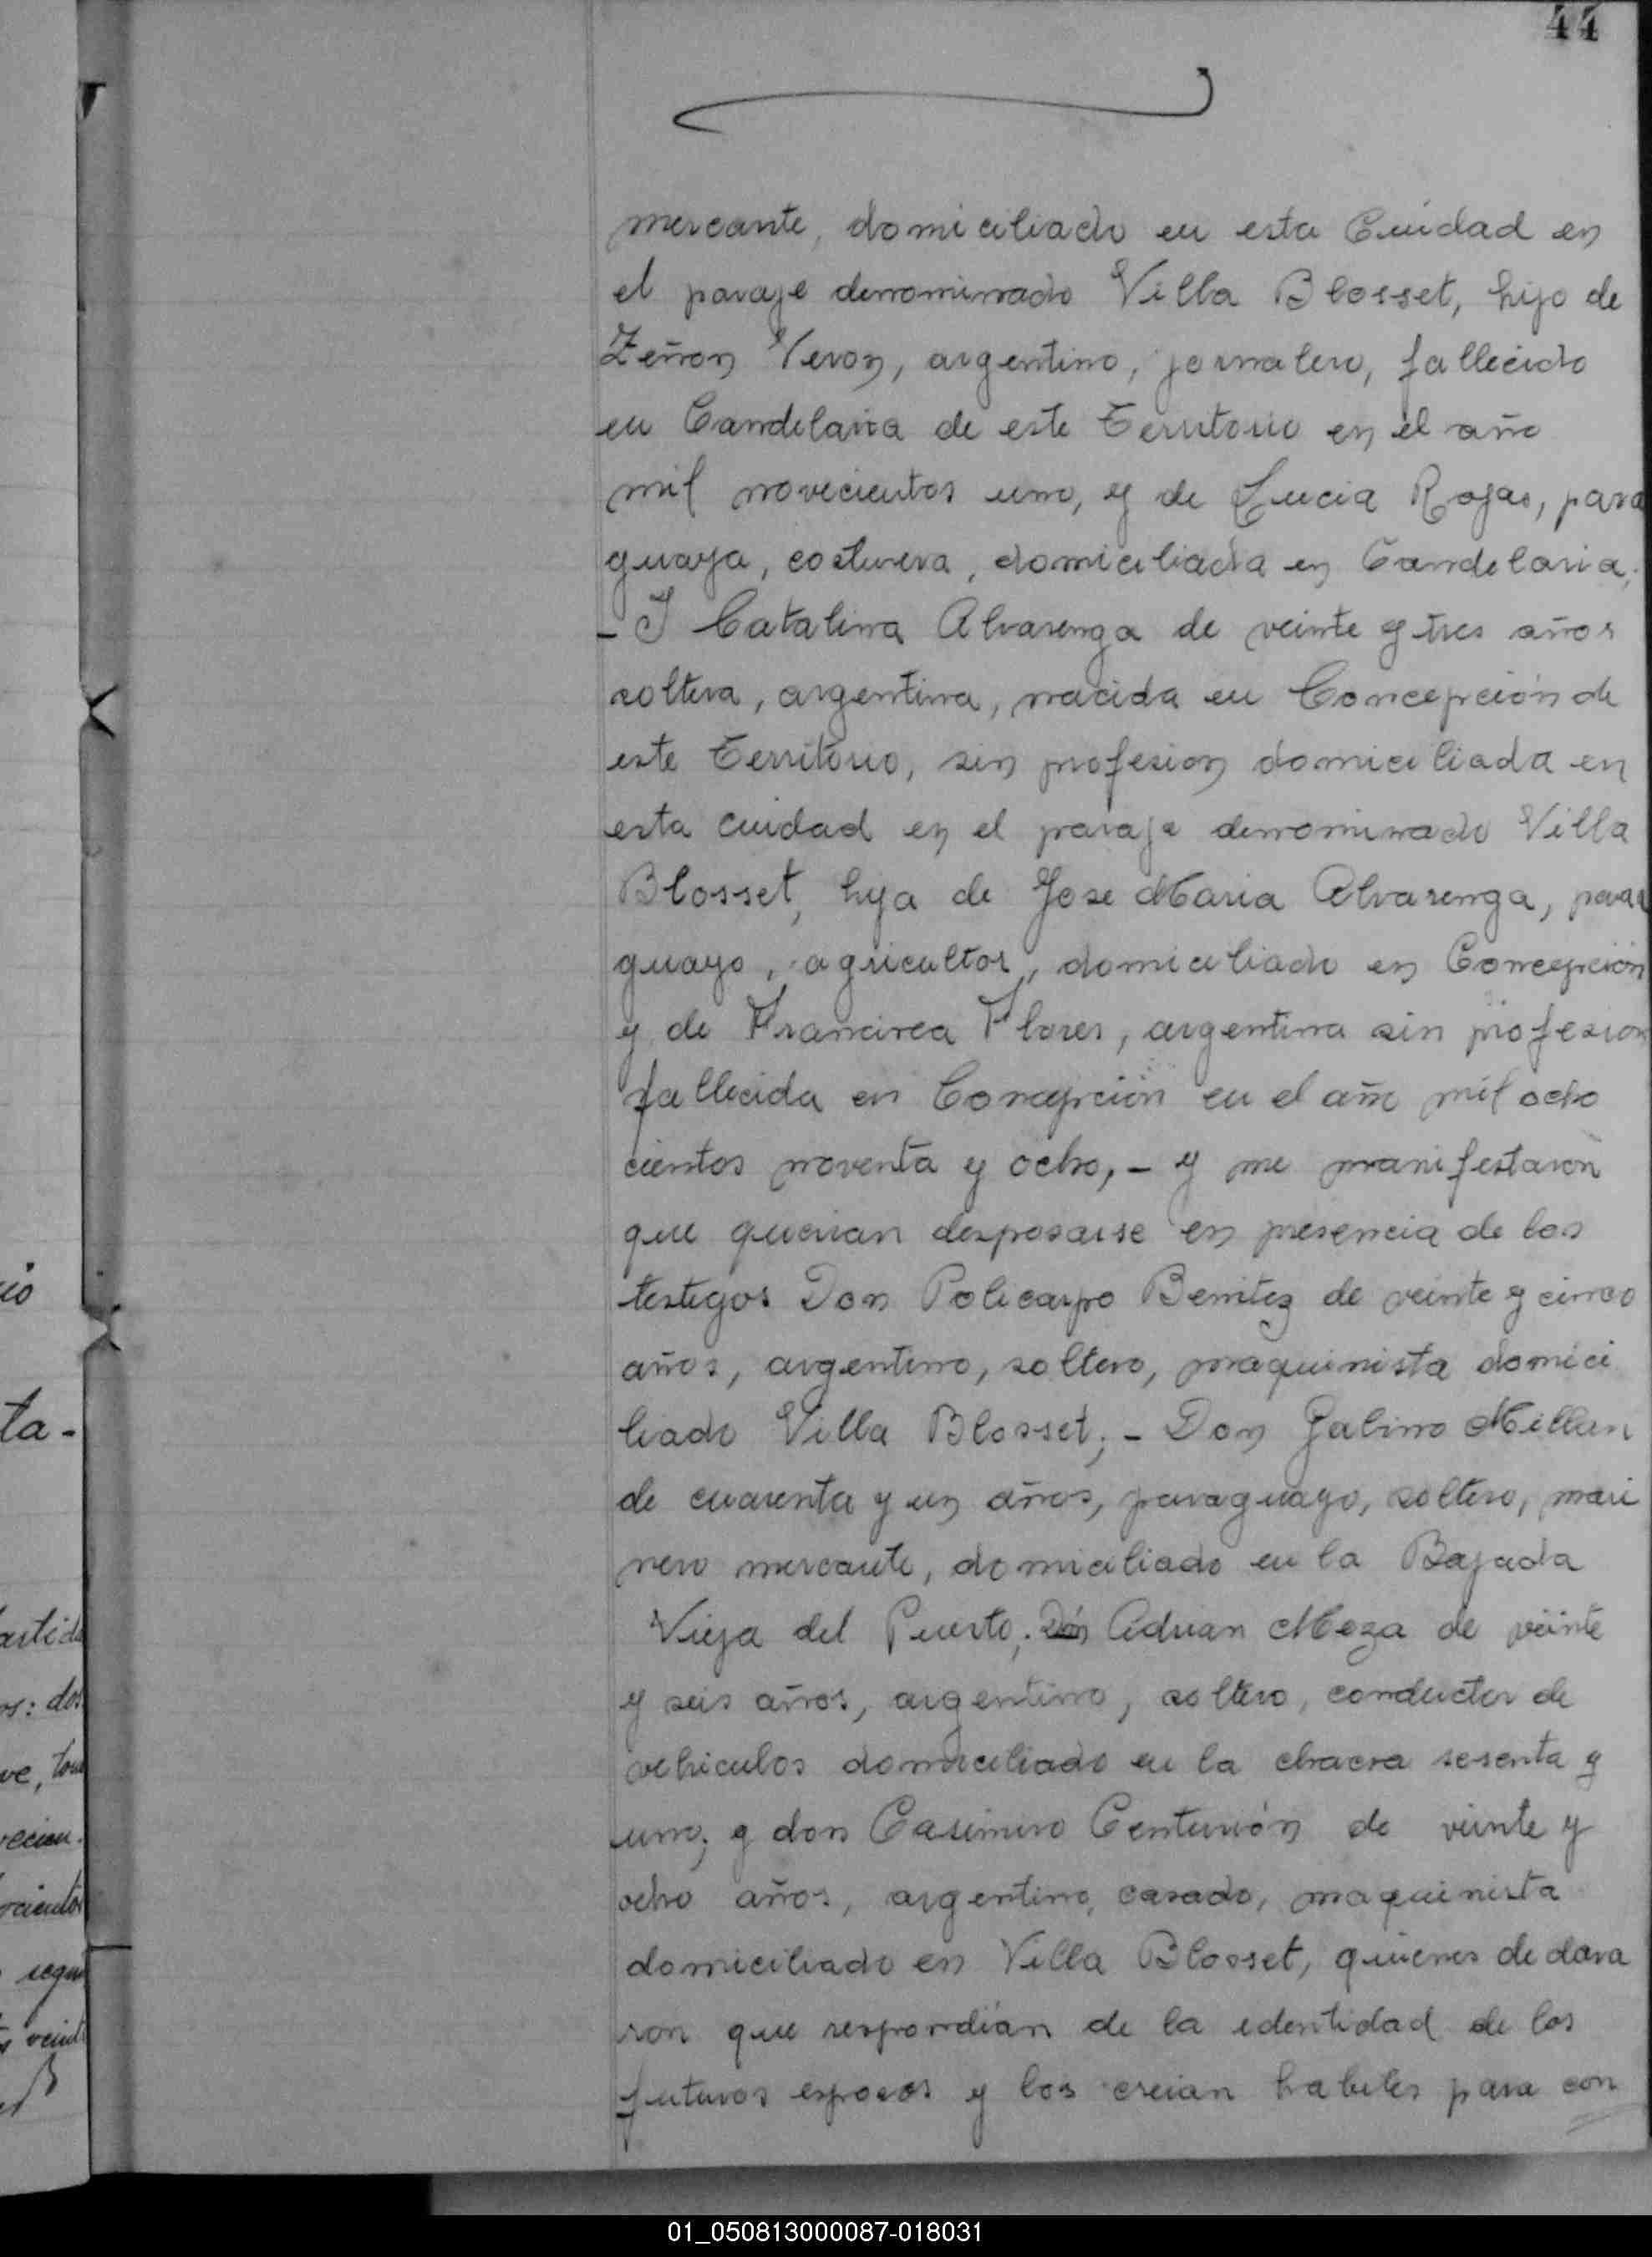 44
mercante, domiciliado en esta Cuidad en
el paraje denominado Villa Blosset, hijo de
Zeñon Veron, argentino, jornalero, fallecido
en Candelaria de este Territorio en el año
mil novecientos uno, y de Lucia Rojas, para
guaya, costurera, domiciliada en Candelaria;
- I Catalina Alvarenga de veinte y tres años
soltera, argentina, nacida en Concepción de
este Territorio, sin profesion domiciliada en
esta cuidad en el paraje denominado Villa
Blosset, hija de Jose Maria Alvarenga, para
guayo, agricultor, domiciliado en Concepción
y de Francisca Flores, argentina sin profesion
fallecida en Concepción en el año mil ocho
cientos noventa y ocho, - y me manifestaron
que querian desposarse en presencia de los
testigos Don Policarpo Benitez de veinte y cinco
años, argentino, soltero, maquinista domici
liado Villa Blosset; - Don Galino Millan
de cuarenta y un años, paraguayo, soltero, mari
nero mercante, domiciliado en la Bajada
Vieja del Puerto; Don Adrian Meza de veinte
y seis años, argentino, soltero, conductor de
vehiculos domiciliado en la chacra sesenta y
uno; y don Casimiro Centurión de veinte y
ocho años, argentino, casado, maquinista
domiciliado en Villa Blosset, quienes declara
ron que respondian de la identidad de los
futuros esposos y los creian habiles para con
io
ta-
artida
os: dos
ve, tom
recien.
cientos
segun
veinti
01_050813000087-018031